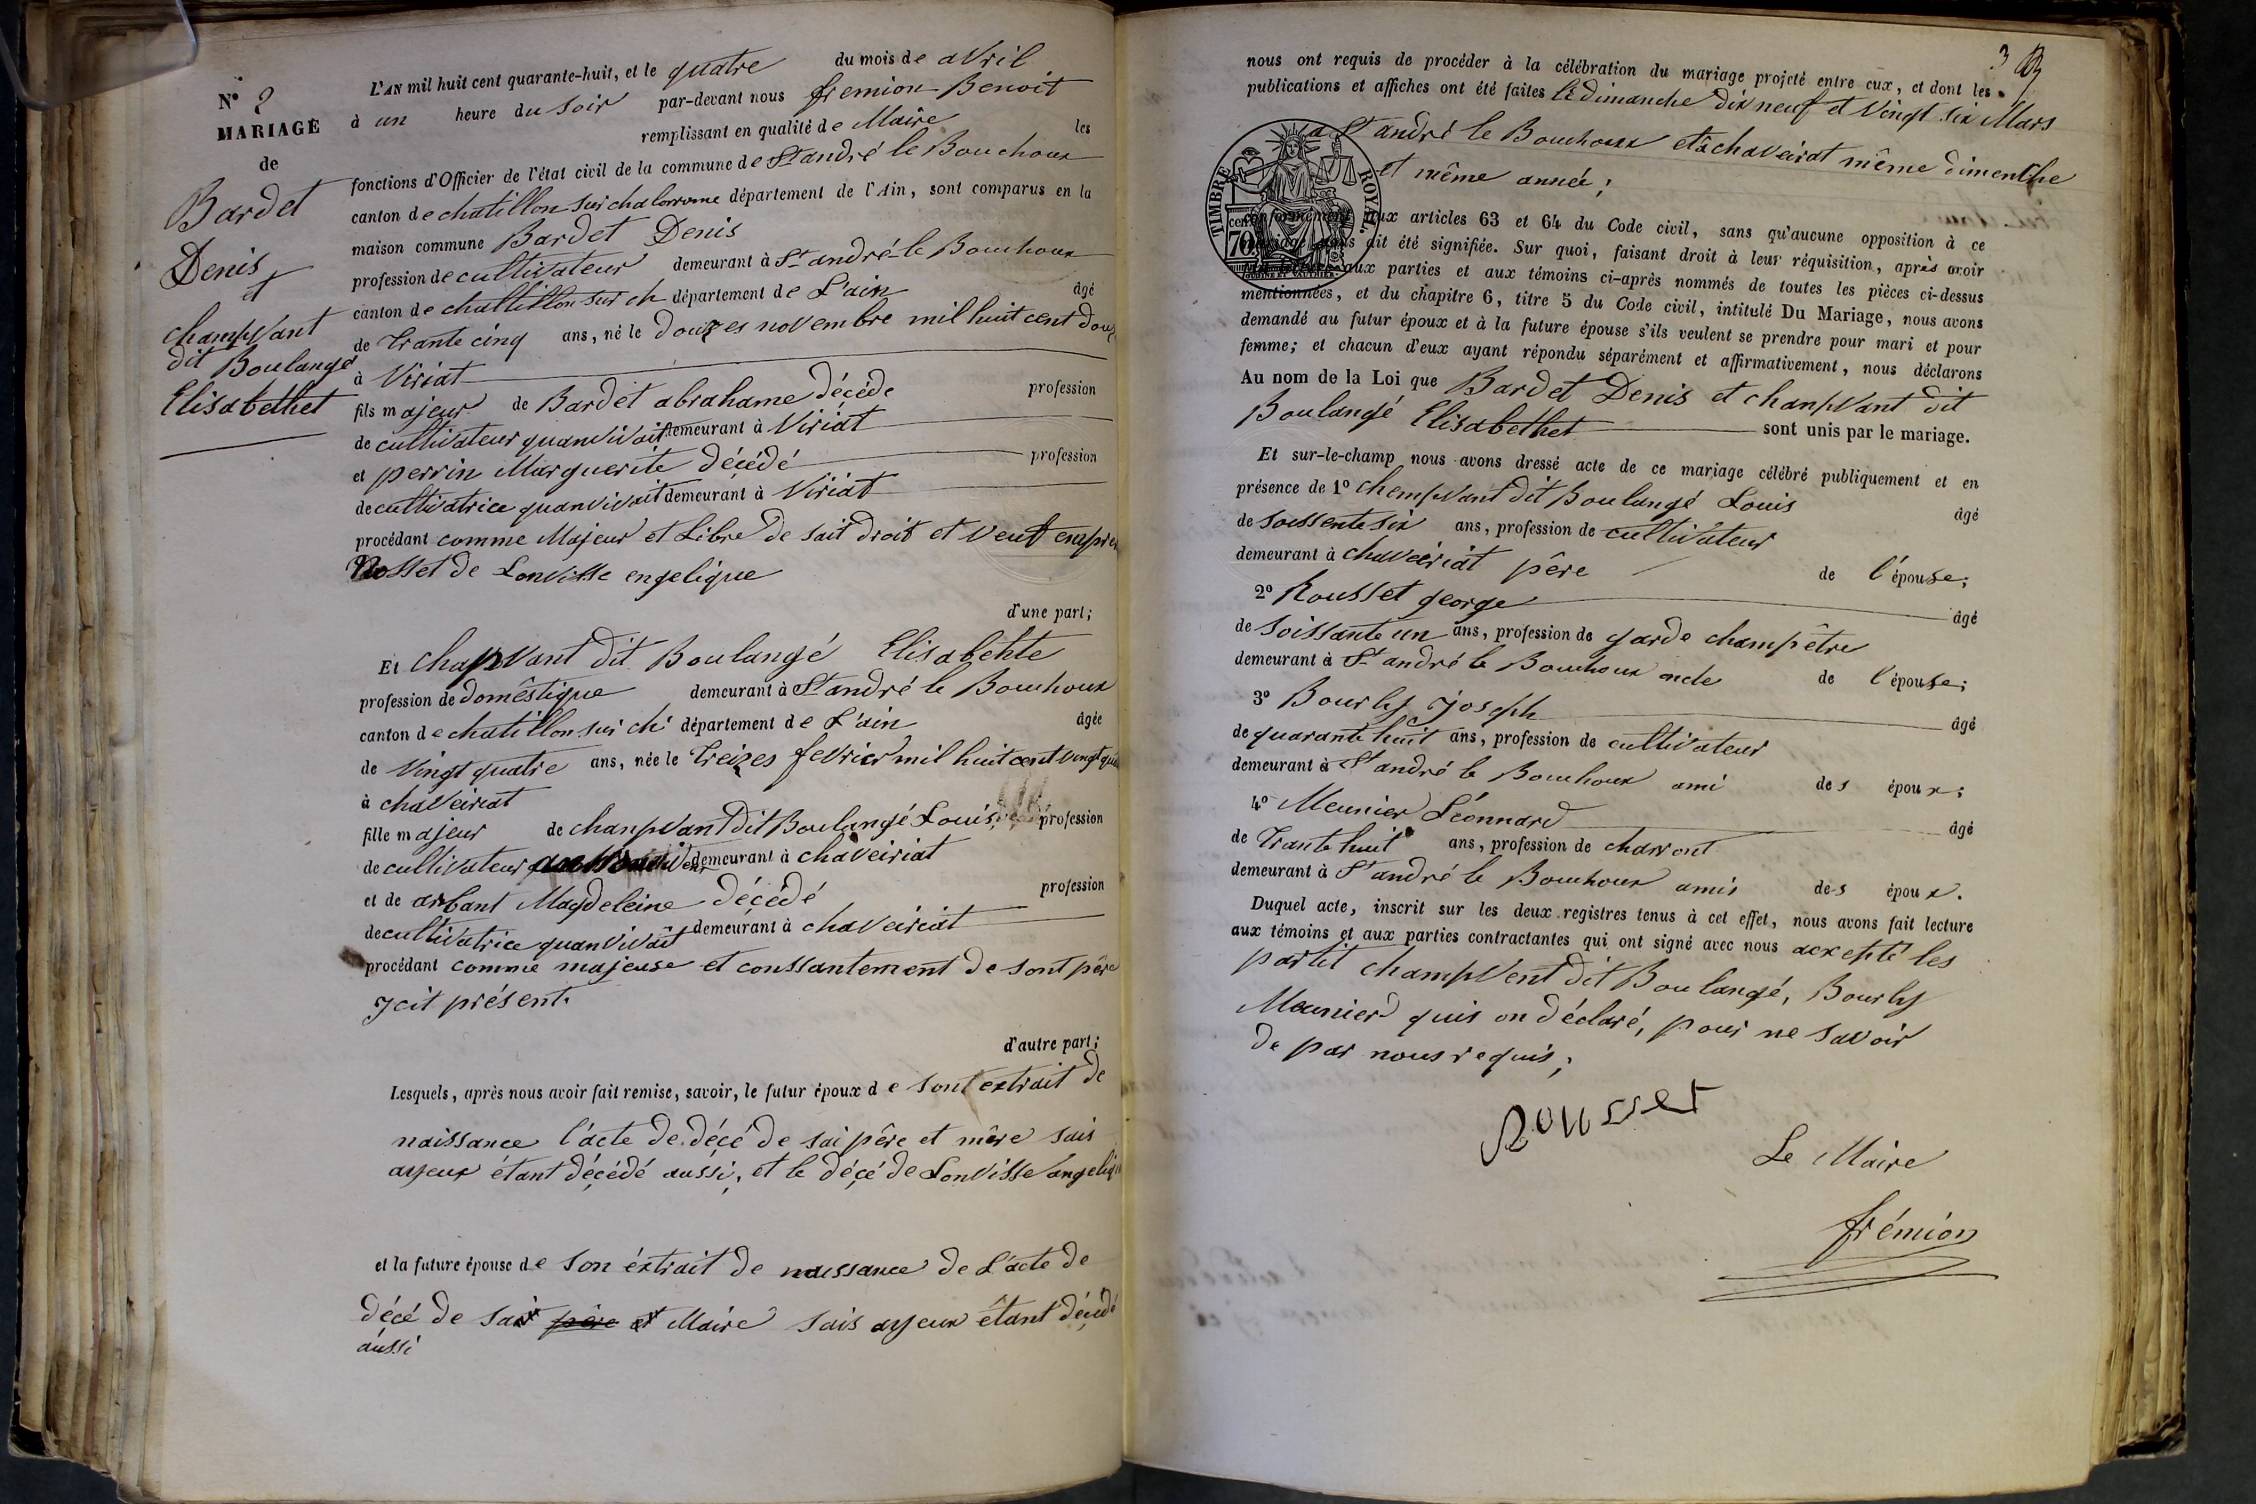 N° 2
MARIAGE
de
Bardet
Denis
et
champvant
dit Boulangé
Elisabethet
L'AN mil huit cent quarante-huit, et le quatre du mois de avril
à un heure du soir par-devant nous fremion Benoit
remplissant en qualité de Maire les
fonctions d'Officier de l'état civil de la commune de St andré le Bouchoux
canton de chatillon sur chalaronne département de l'Ain, sont comparus en la
maison commune Bardet Denis
profession de cultivateur demeurant à St andré le Bouchoux
canton de chatillon sur ch département de L'ain âgé
de trante cinq ans, né le douzes novembre mil huit cent douz
à Viriat
fils majeur de Bardet abrahame décéde profession
de cultivateur quanvivait demeurant à Viriat
et perrin Marguerite décédé profession
de cultivatrice quanvivait demeurant à Viriat
procédant comme Majeur et Libre de sait droit et veuf empre
Nosset de Lonvisse engelique
d'une part;
Et chapvant dit Boulangé Elisabehte
profession de domêstique demeurant à St andré le Bouchoux
canton de chatillon sur ch département de L'ain âgée
de vingt quatre ans, née le treizes fevrier mil huit cent vingt qua
à chaveiriat
fille majeur de chanpvant dit Boulangé Louis profession
de cultivateur demeurant à chaveiriat
et de arbant Magdeleine décédé profession
de cultivatrice quanvivait demeurant à chaveiriat
procédant comme majeuse et conssantement de sont père
ycit présent.
d'autre part;
Lesquels, après nous avoir fait remise, savoir, le futur époux de sont extrait de
naissance l'acte de décé de sai père et mère sais
ayeux étant décédé aussi, et le décé de Lonvisse angeliq
et la future épouse de son éxtrait de naissance de L'acte de
décé de sai père et Maire sais ayeux étant décédé
aussi
3
nous ont requis de procéder à la célébration du mariage projeté entre eux, et dont les
publications et affiches ont été faites le dimanche dix neuf et vingt six Mars
a St andré le Bouchoux et à chaveirat même dimenche
et même année;
TIMBRE ROYAL.
70
conformément aux articles 63 et 64 du Code civil, sans qu'aucune opposition à ce
mariage nous ait été signifiée. Sur quoi, faisant droit à leur réquisition, après avoir
aux parties et aux témoins ci-après nommés de toutes les pièces ci-dessus
mentionnées, et du chapitre 6, titre 5 du Code civil, intitulé Du Mariage, nous avons
demandé au futur époux et à la future épouse s'ils veulent se prendre pour mari et pour
femme; et chacun d'eux ayant répondu séparément et affirmativement, nous déclarons
Au nom de la Loi que Bardet Denis et chanpvant dit
Boulangé Elisabethet sont unis par le mariage.
Et sur-le-champ nous avons dressé acte de ce mariage célébré publiquement et en
présence de 1° chempvant dit Boulangé Louis âgé
de soissente six ans, profession de cultivateur
demeurant à chaveiriat père de l'épouse;
2° Rousset george âgé
de soissante un ans, profession de garde champêtre
demeurant à St andré le Bouchoux oncle de l'épouse;
3° Bourly Joseph âgé
de quarante huit ans, profession de cultivateur
demeurant à St andré le Bouchoux ami des époux;
4° Meunier Léonnard âgé
de trante huit ans, profession de charront
demeurant à St andré le Bouchoux amis des époux.
Duquel acte, inscrit sur les deux registres tenus à cet effet, nous avons fait lecture
aux témoins et aux parties contractantes qui ont signé avec nous acxepté les
partit champvent dit Boulangé, Bourly
Meunier quis on déclaré, pour ne savoir
de par nous requis;
Rousset
Le Maire
frémion